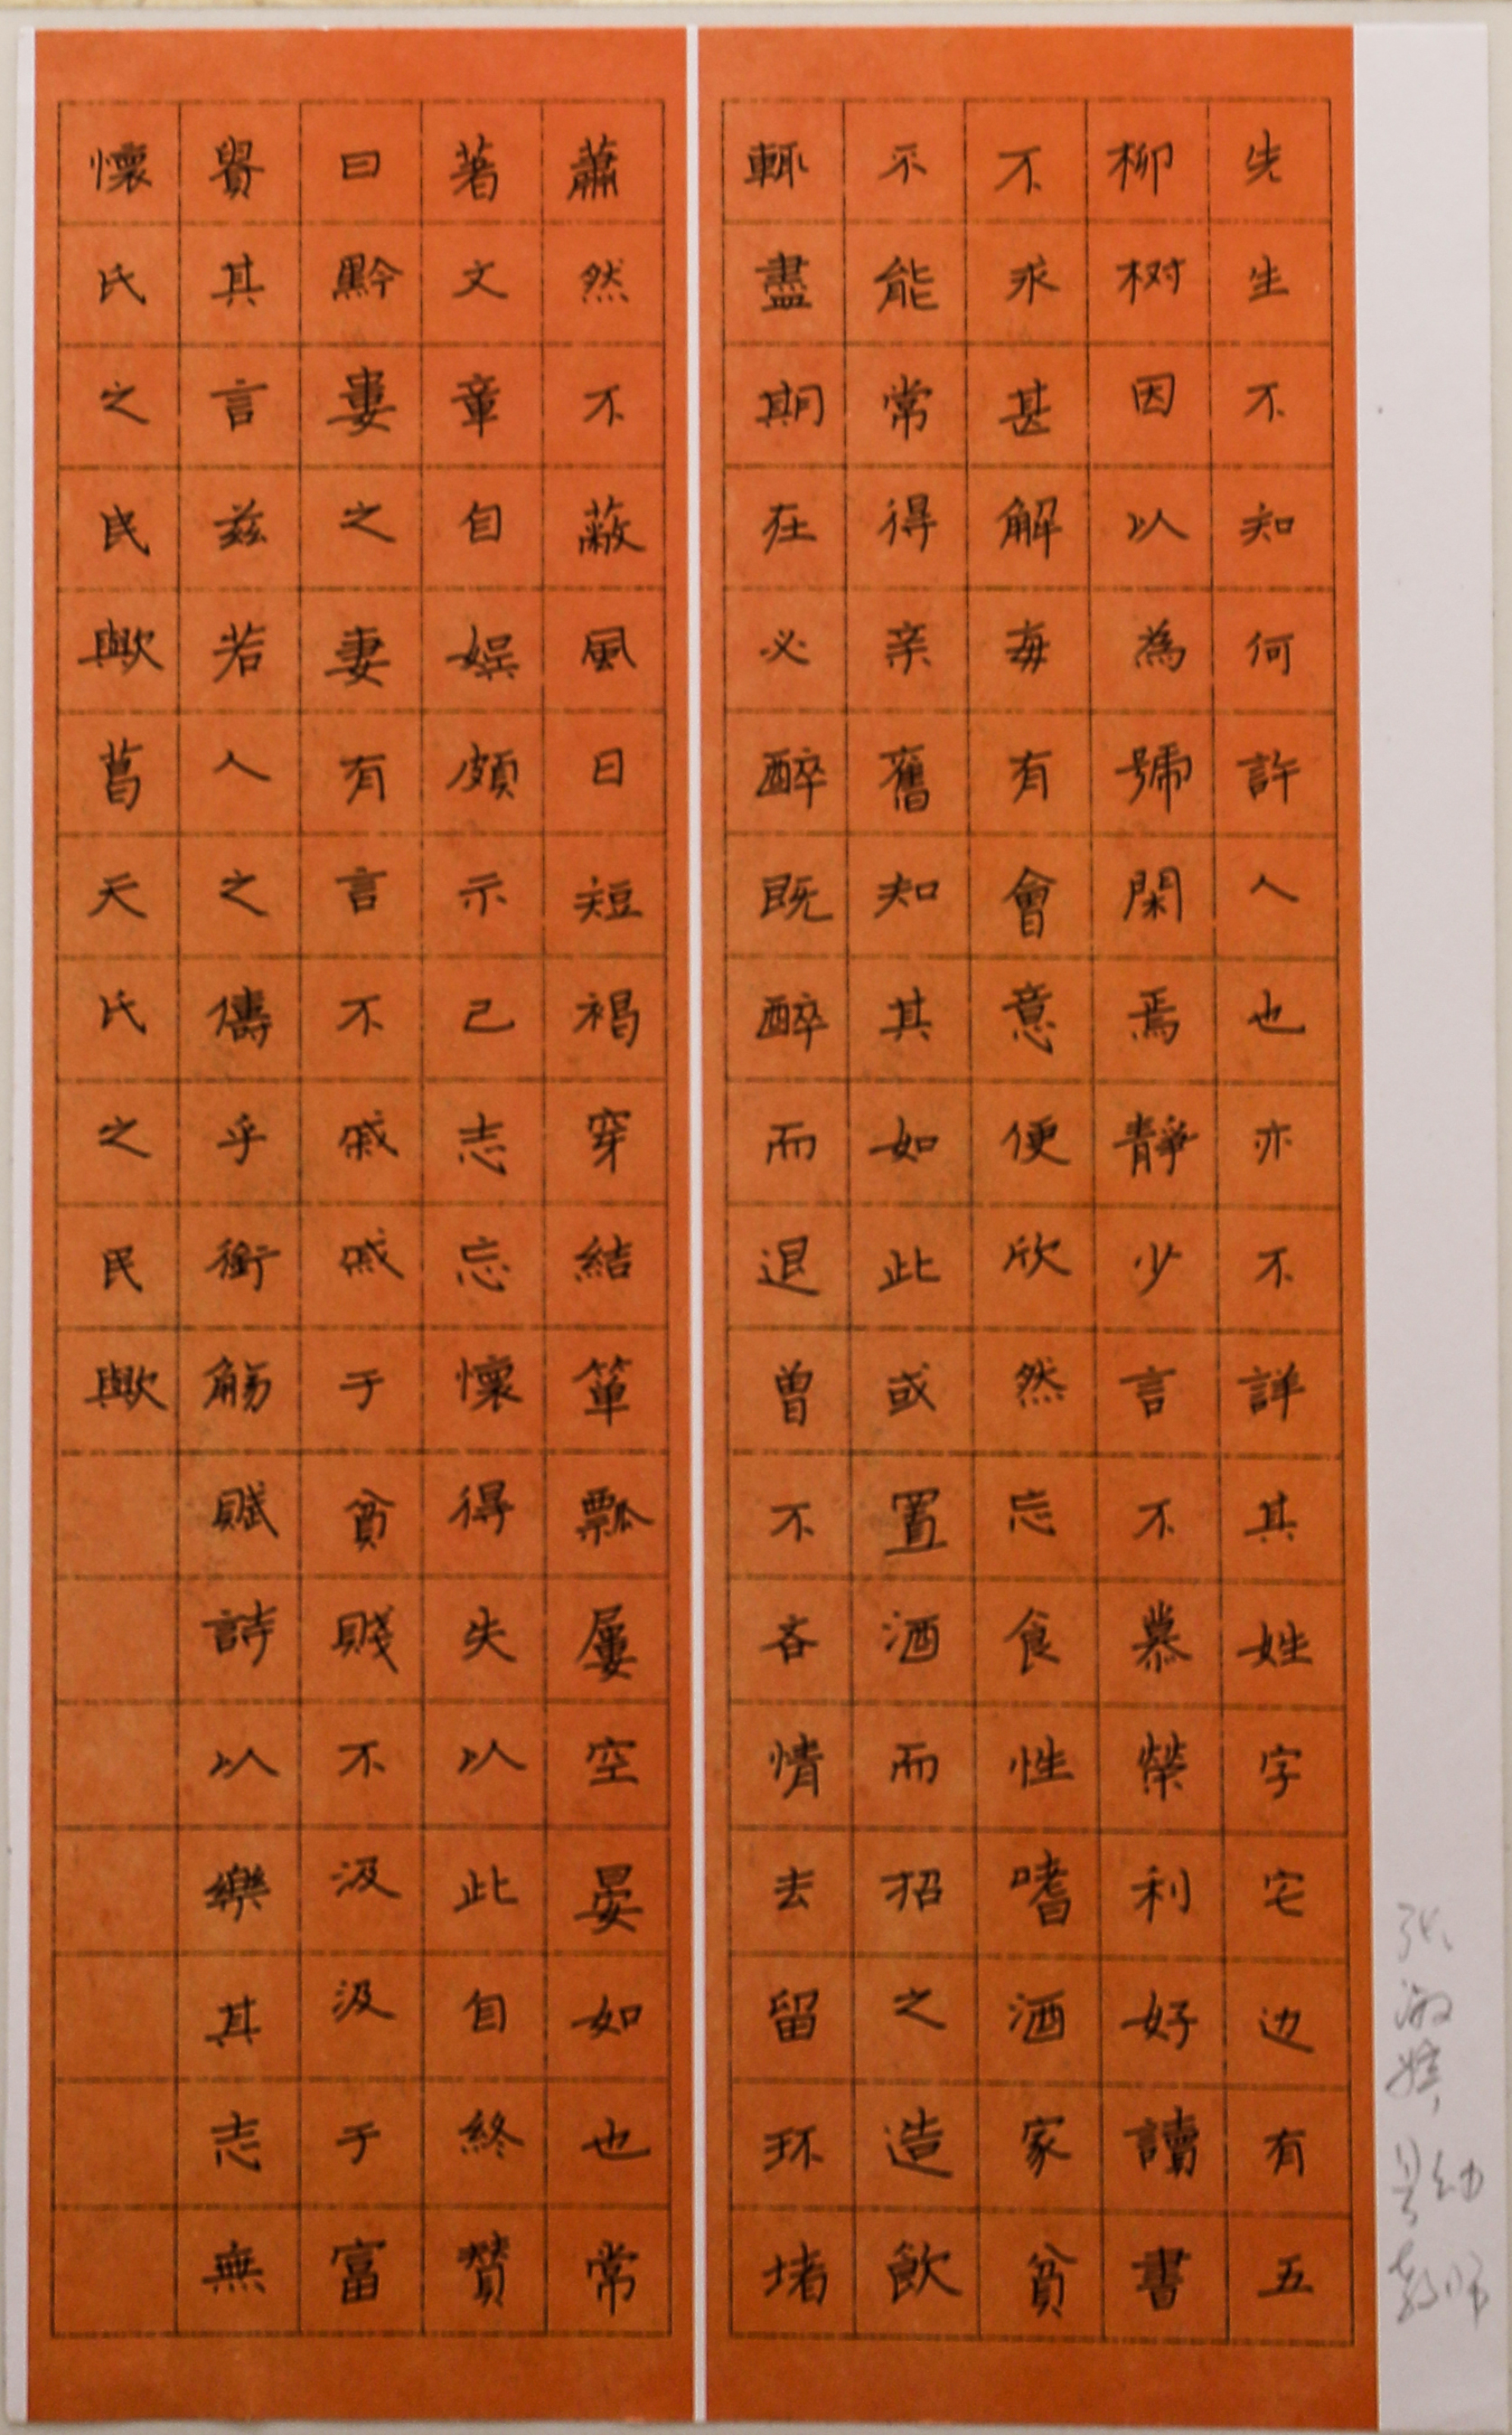 先生不知何許人也亦不詳其姓字宅边有五
柳树因以為號閑焉靜少言不慕榮利好讀書
不求甚解每有會意便欣然忘食性嗜酒家貧
不能常得亲舊知其如此或置酒而招之造飲
輒盡期在必醉既醉而退曾不吝情去留环堵
蕭然不蔽風日短褐穿結箪瓢屢空晏如也常
著文章自娱頗示己志忘懷得失以此自終贊
曰黔婁之妻有言不戚戚于貧賤不汲汲于富
貴其言兹若人之儔乎銜觴賦詩以樂其志無
懷氏之民歟葛天氏之民歟
教师